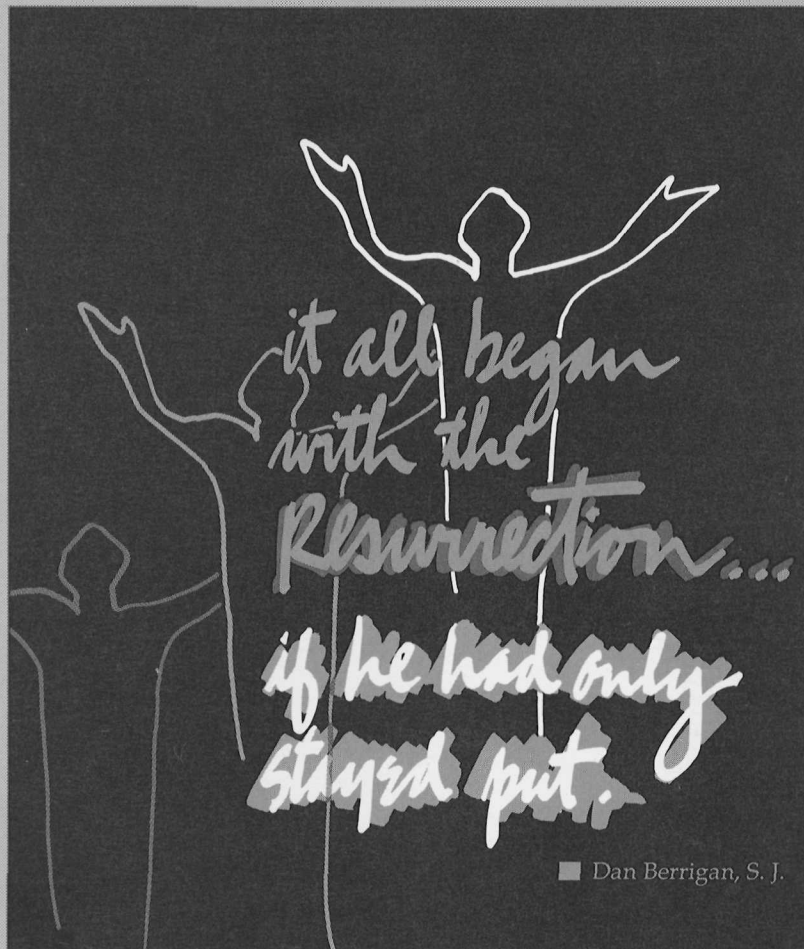 it all began
with the
Resurrection...
if he had only
stayed put.
Dan Berrigan, S. J.